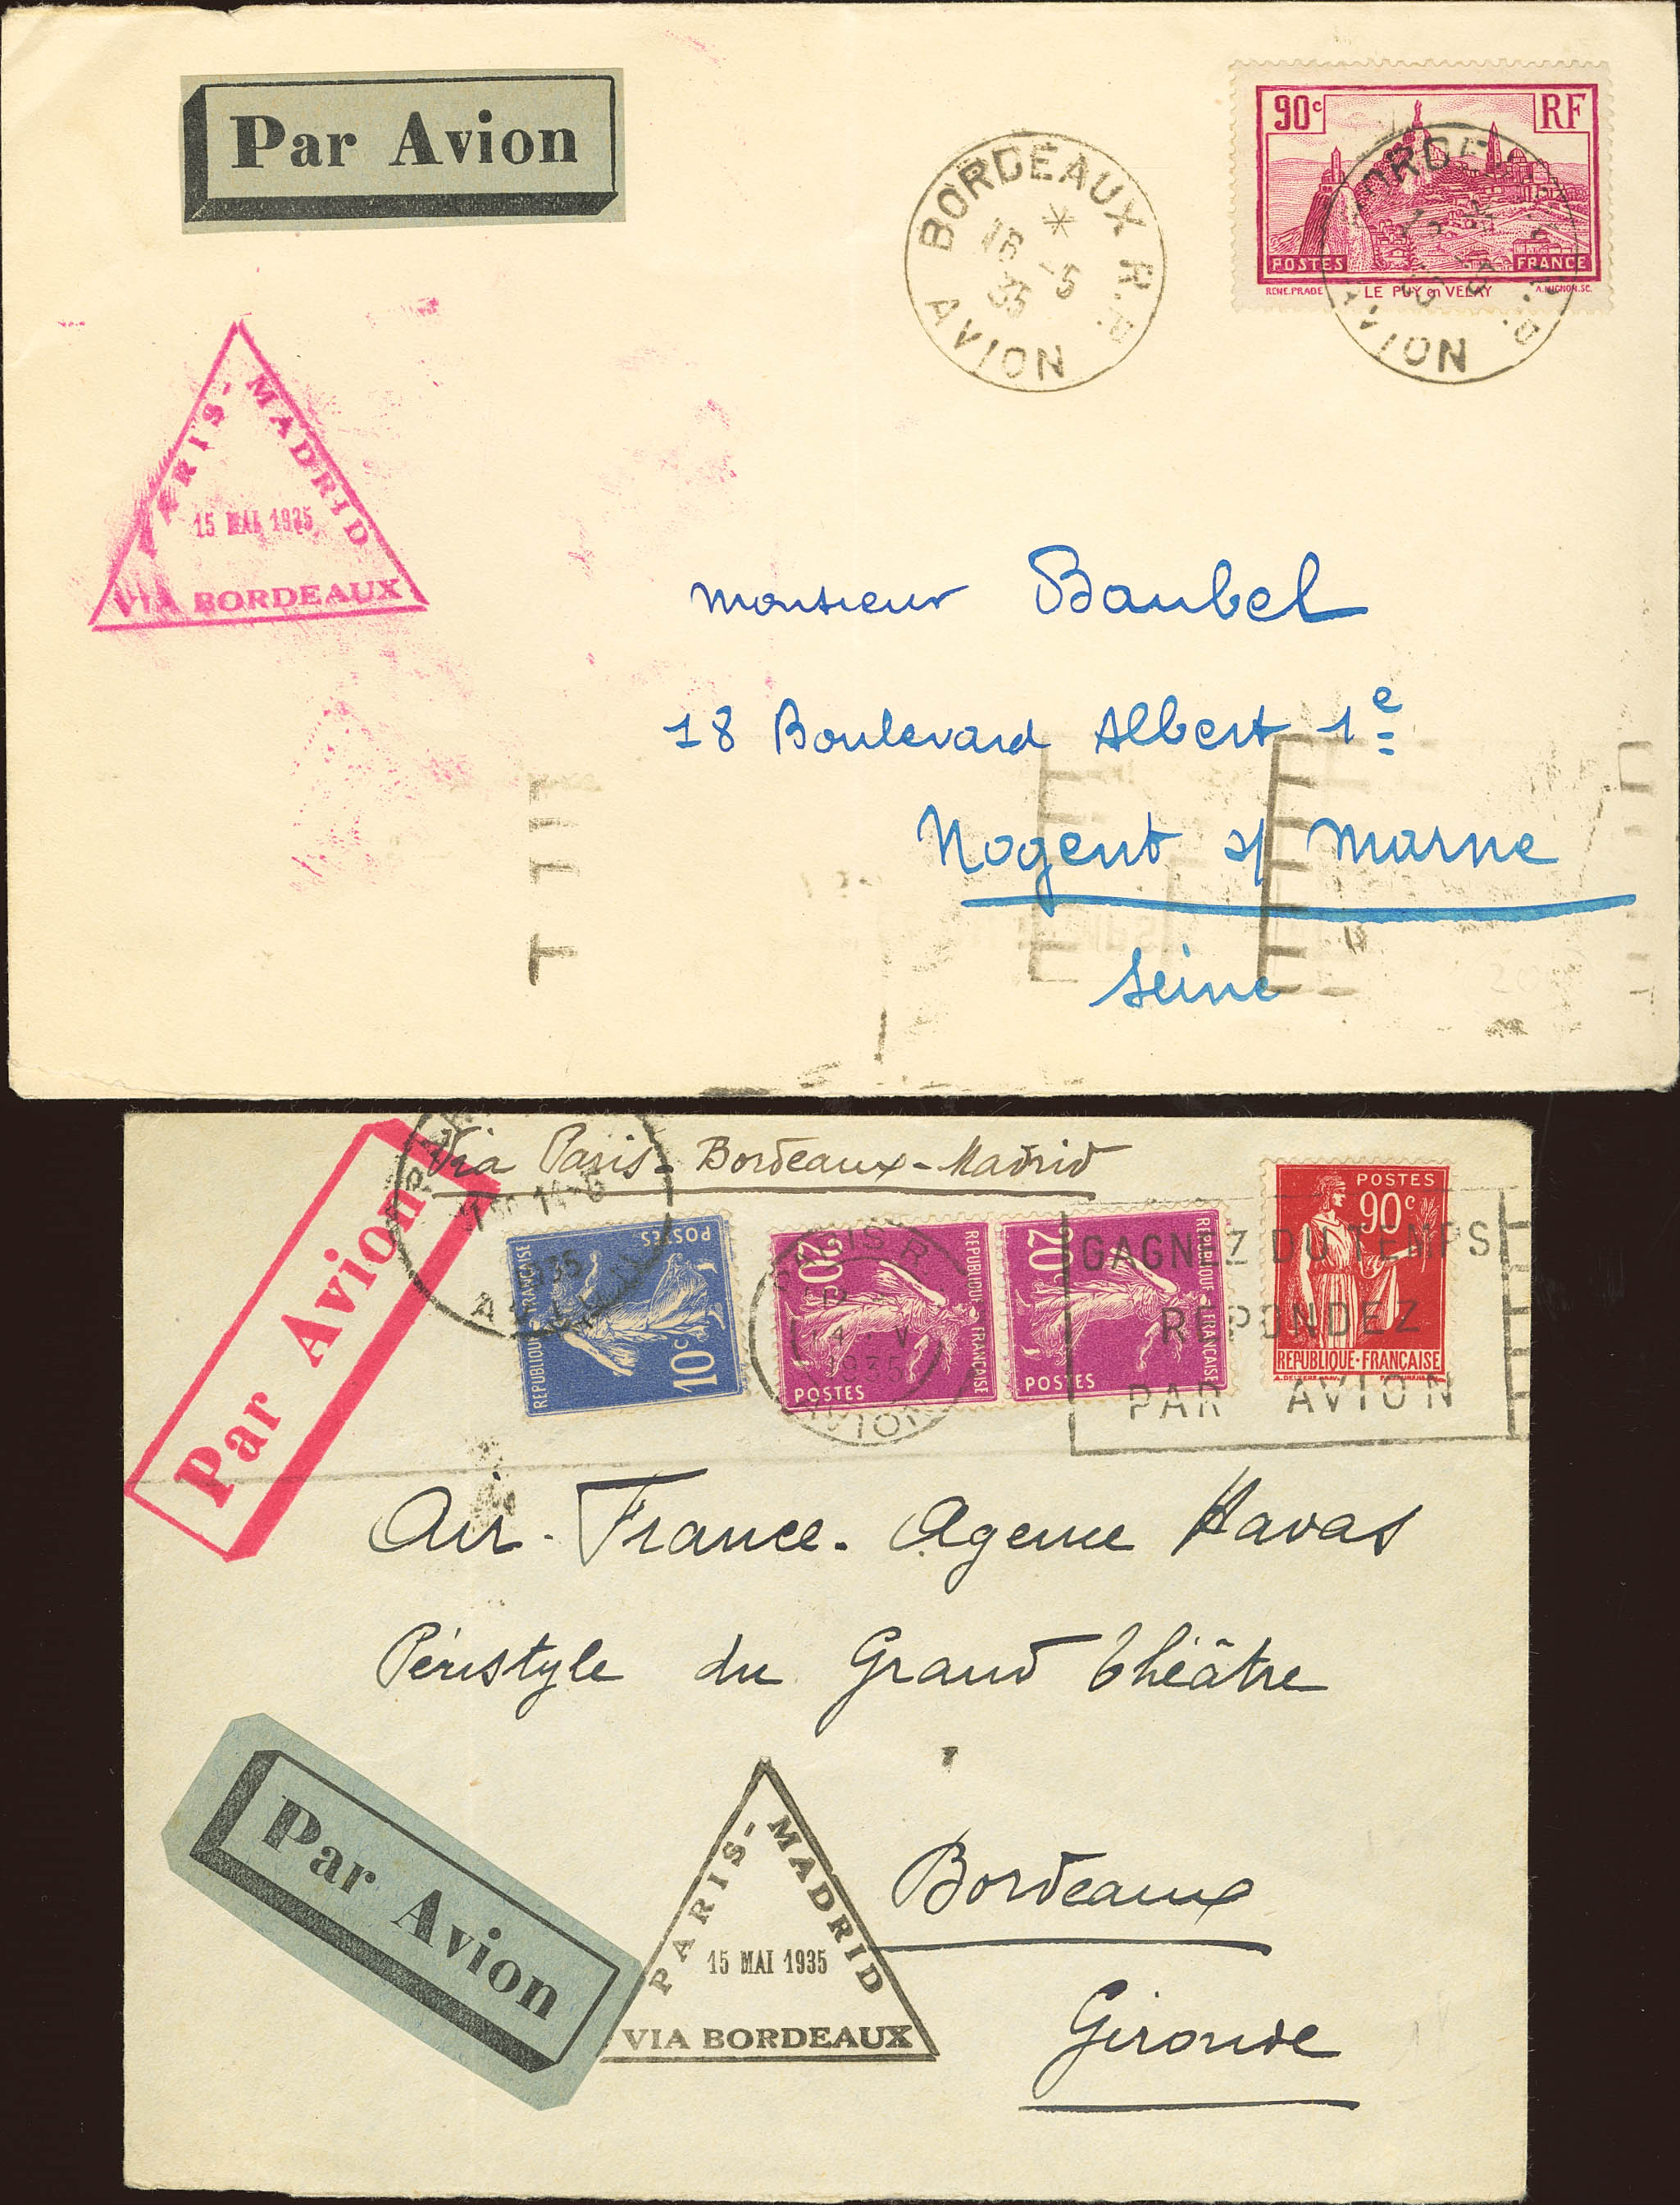 Par Avion
90c RF
POSTES FRANCE
RENE.PRADE LE PUY en VELAY A.MIGNON.SC.
BORDEAUX R.P.
*
16 -5
35
AVION
AVION
PARIS-MADRID
15 MAI 1935
VIA BORDEAUX
Monsieur Baubel
18 Boulevard Albert 1e
Nogent s/ Marne
Seine
Via Paris-Bordeaux-Madrid
Par Avion
1935
POSTES
10c
REPUBLIQUE FRANÇAISE
20c
POSTES
REPUBLIQUE FRANÇAISE
20c
POSTES
REPUBLIQUE FRANÇAISE
POSTES
90c
REPUBLIQUE-FRANÇAISE
PARIS R.P.
14 V
1935
AVION
GAGNEZ DU TEMPS
REPONDEZ
PAR AVION
Air-France-Agence Havas
Péristyle du Grand théâtre
Bordeaux
Gironde
Par Avion
PARIS-MADRID
15 MAI 1935
VIA BORDEAUX